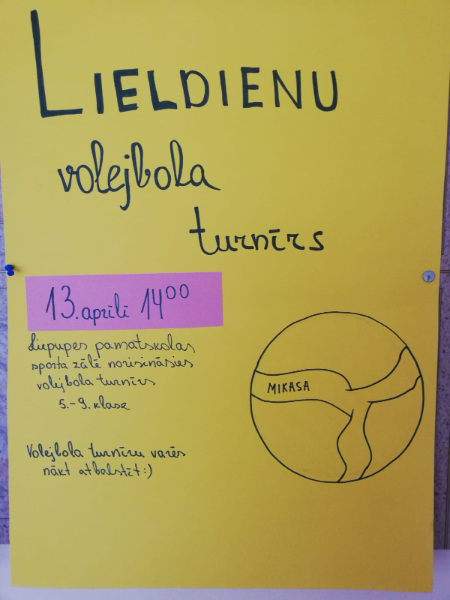 LIELDIENU
volejbola
turnīrs
13. aprīlī 14⁰⁰
Liepupes pamatskolas
sporta zālē norisināsies
volejbola turnīrs
5.-9. klase
MIKASA
Volejbola turnīru varēs
nākt atbalstīt :)